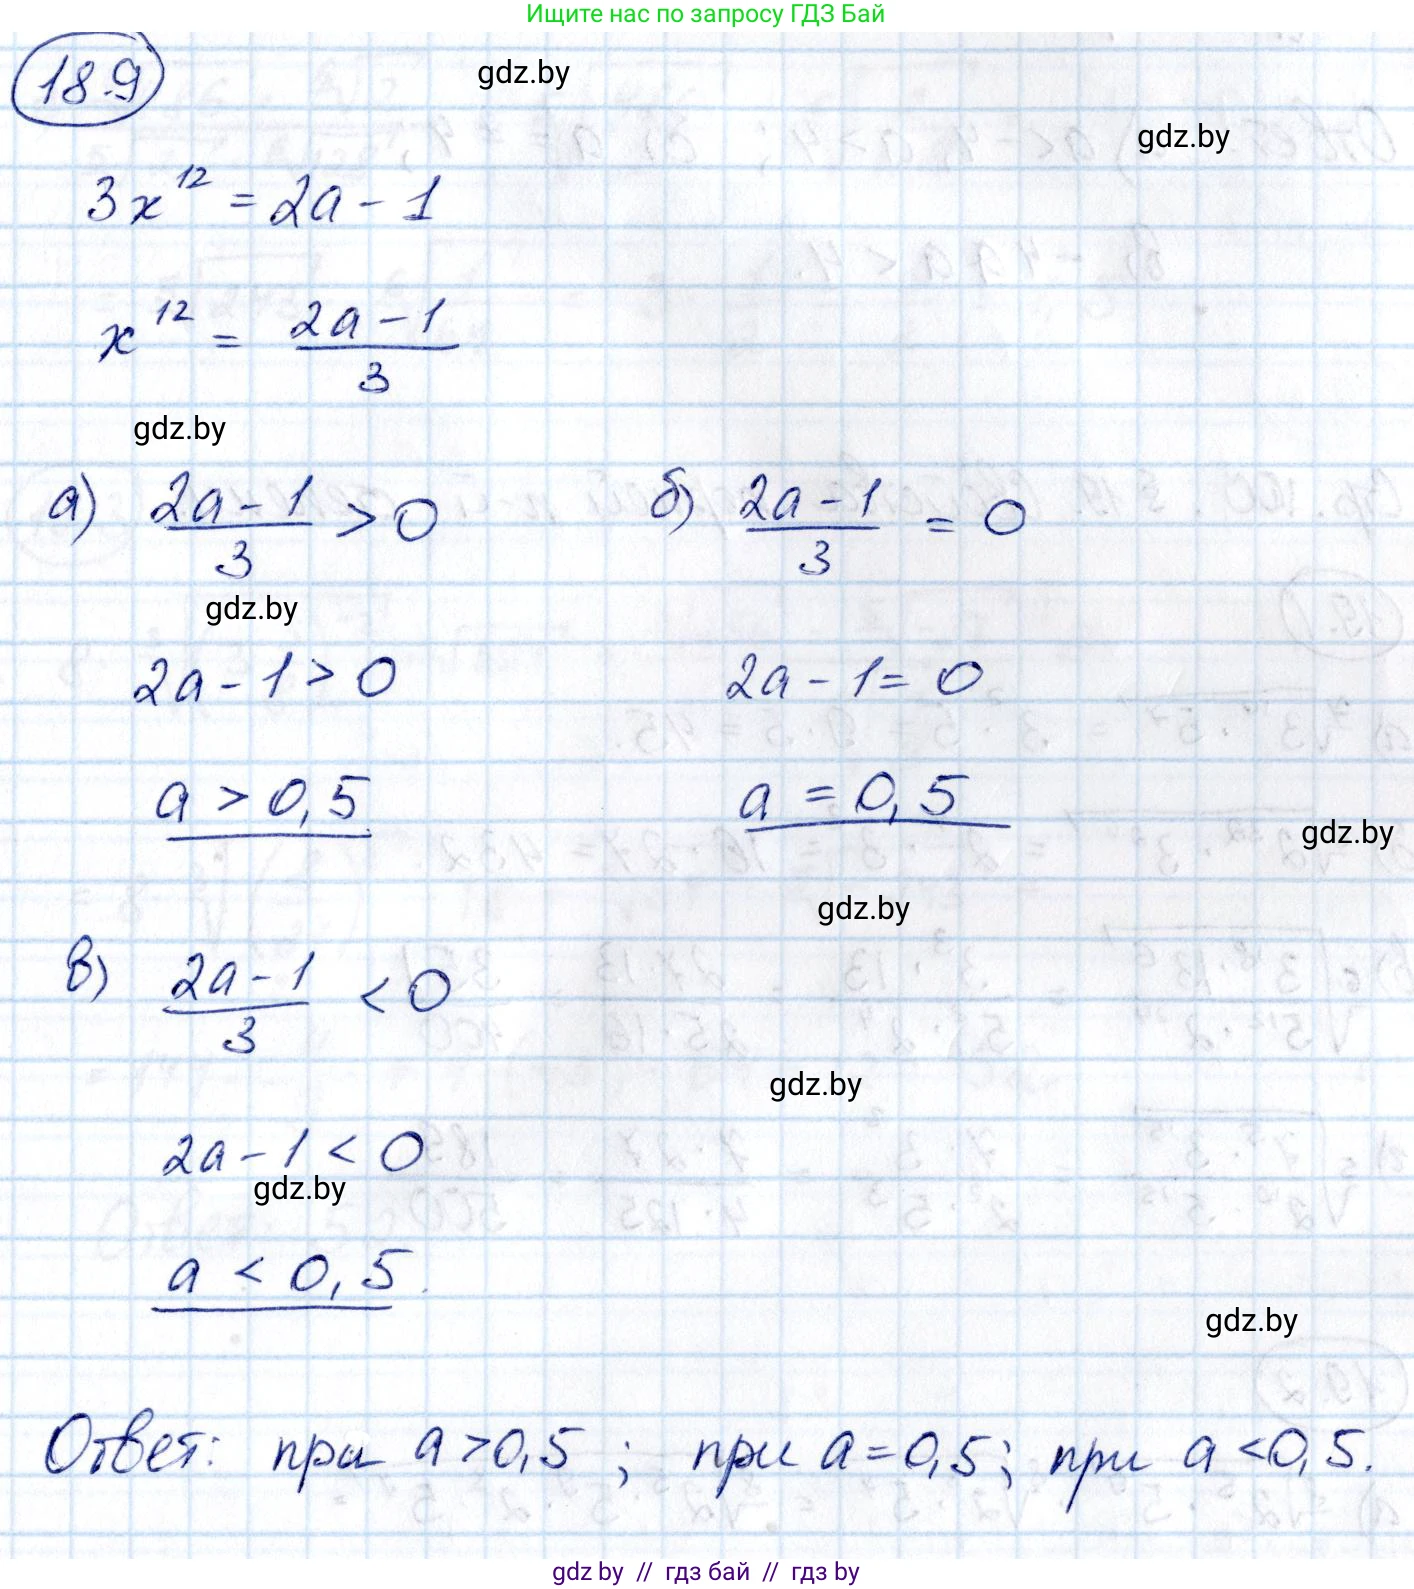 Ищите нас по запросу ГДЗ Бай
18.9
gdz.by
gdz.by
3x^12 = 2a - 1
x^12 = (2a - 1)/3
gdz.by
а) (2a - 1)/3 > 0
б) (2a - 1)/3 = 0
gdz.by
2a - 1 > 0
2a - 1 = 0
a > 0,5
a = 0,5
gdz.by
gdz.by
в) (2a - 1)/3 < 0
gdz.by
2a - 1 < 0
gdz.by
a < 0,5.
gdz.by
Ответ: при a > 0,5 ; при a = 0,5; при a < 0,5.
gdz.by // гдз бай // гдз by